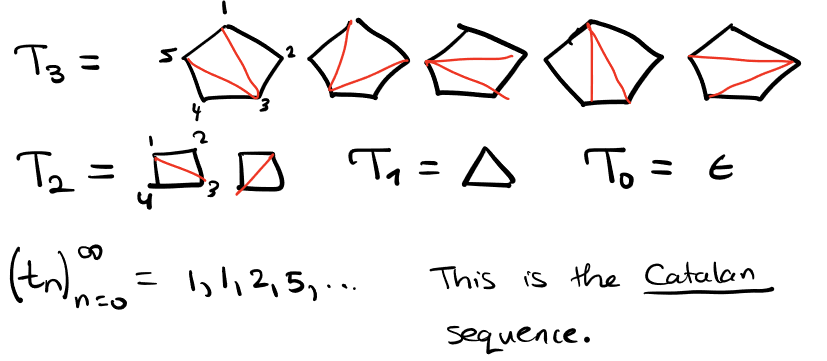 T₃ =
1
5 2
4 3
T₂ = 1 2 3 4 T₁ = △ T₀ = ε
(tₙ)ₙ₌₀^∞ = 1, 1, 2, 5, ... This is the Catalan
sequence.